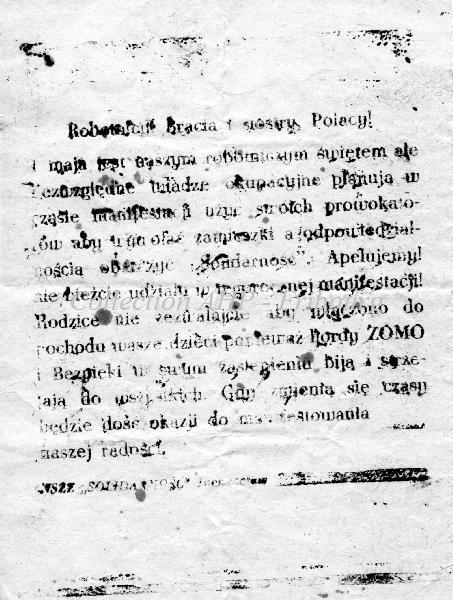 Robotnicy! Bracia i siostry, Polacy!
1 maja jest naszym robotniczym świętem ale
bezwzględne władze okupacyjne planują w
czasie manifestacji użyć swoich prowokato-
rów aby wywołać zamieszki a odpowiedzial-
nością obarczyć „Solidarność”. Apelujemy!
nie bierzcie udziału w tegorocznej manifestacji!
Rodzice nie zezwalajcie aby włączono do
pochodu wasze dzieci ponieważ hordy ZOMO
i Bezpieki w swym zaślepieniu biją i strze-
lają do wszystkich. Gdy zmienią się czasy
będzie dość okazji do manifestowania
naszej radości.
NSZZ „SOLIDARNOŚĆ”
Collection